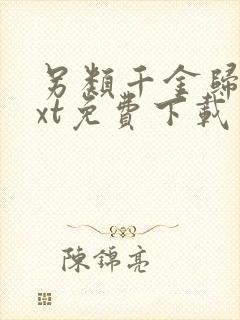 另類千金歸
xt免費下載
陳錦亮